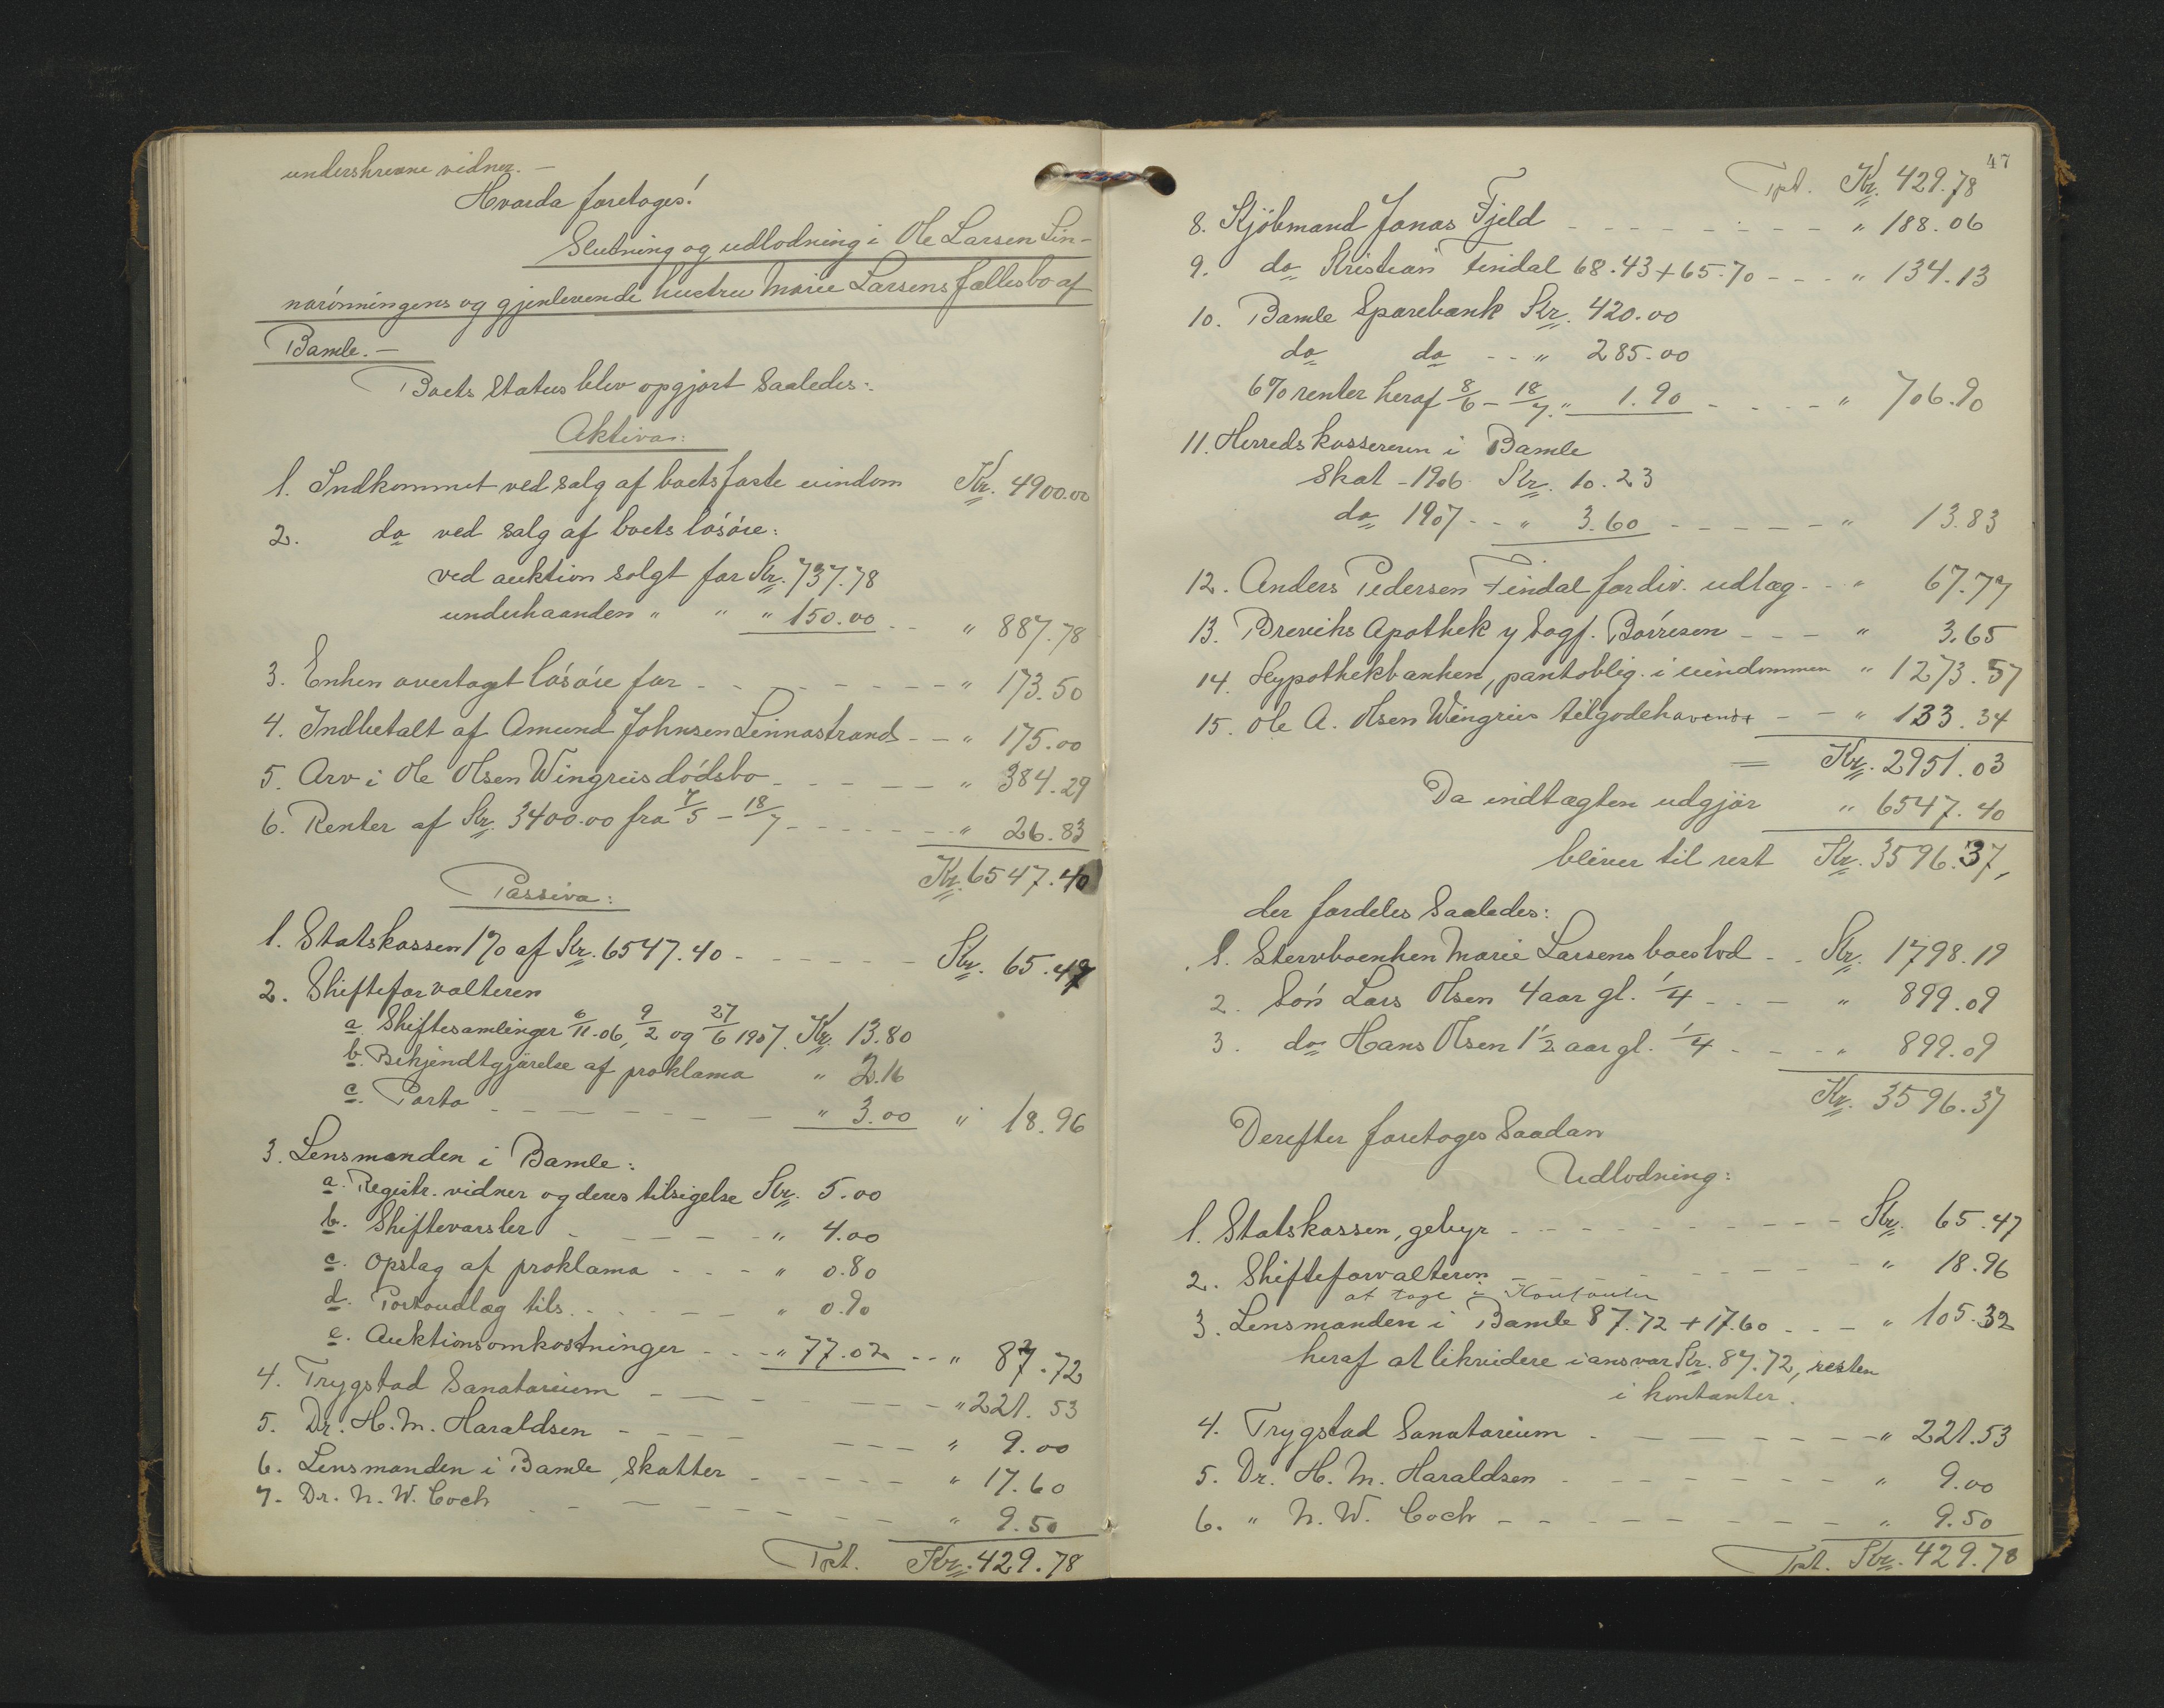 underskrevne vidner. —
Hvorda foretoges!
Slutning og udlodning i Ole Larsen Lin-
narönningens og gjenlevende hustru Marie Larsens fællesbo af
Bamle. —
Boets status blev opgjort saaledes:
Aktiva:
1. Indkommet ved salg af boets faste eiendom Kr. 4900.00
2. do ved salg af boets lösöre:
ved auktion solgt for Kr. 737.78
underhaanden " " " 150.00 - - " 887.78
3. Enken overtaget lösöre for - - - - - - " 173.50
4. Indbetalt af Amund Johnsen Linnastrand - - " 175.00
5. Arv i Ole Olsen Wingreis dödsbo - - - - - " 384.29
6. Renter af Kr. 3400.00 fra 7/5 - 18/7 - - - - - - " 26.83
Kr. 6547.40
Passiva:
1. Statskassen 1% af Kr. 6547.40 - - - - - - Kr. 65.47
2. Skifteforvalteren
a. Skiftesamlinger 6/11.06, 9/2 og 27/6 1907. Kr. 13.80
b. Bekjendtgjörelse af proklama " 2.16
c. Porto - - - - - - - " 3.00 " 18.96
3. Lensmanden i Bamle:
a. Registr. vidner og deres tilsigelse Kr. 5.00
b. Skiftevarsler - - - - - " 4.00
c. Opslag af proklama - - - " 0.80
d. Portoudlæg tils. - - - - - " 0.90
e. Auktionsomkostninger - - - " 77.02 - - " 87.72
4. Trygstad Sanatorium - - - - - - - " 221.53
5. Dr. H. M. Haraldsen - - - - - - - " 9.00
6. Lensmanden i Bamle, skatter - - - - - " 17.60
7. Dr. N. W. Coch - - - - - - - " 9.50
Trpt. Kr. 429.78
47
Trpt. Kr. 429.78
8. Kjöbmand Jonas Fjeld - - - - - - - - " 188.06
9. do Kristian Findal 68.43 + 65.70 - - - " 134.13
10. Bamle Sparebank Kr. 420.00
do do - - " 285.00
6% renter heraf 8/6 - 18/7. " 1.90 - - - - " 706.90
11. Herredskassereren i Bamle
Skat - 1906 Kr. 10.23
do 1907 - - " 3.60 - - - - - " 13.83
12. Anders Pedersen Findal for div. udlæg - - " 67.77
13. Breviks Apothek v/ sagf. Börresen - - - " 3.65
14. Hypothekbanken, pantoblig. i eiendommen " 1273.57
15. Ole A. Olsen Wingreis tilgodehavende - - " 133.34
= Kr. 2951.03
Da indtægten udgjör " 6547.40
bliver til rest Kr. 3596.37,
der fordeles saaledes:
1. Stervboenken Marie Larsens boeslod - - Kr. 1798.19
2. Sön Lars Olsen 4 aar gl. 1/4 - - - " 899.09
3. do Hans Olsen 1 1/2 aar gl. 1/4 - - - " 899.09
Kr. 3596.37
Derefter foretoges saadan
Udlodning:
1. Statskassen, gebyr - - - - - - - - - - Kr. 65.47
2. Skifteforvalteren - - - - - - - " 18.96
at tage i Kontanter
3. Lensmanden i Bamle 87.72 + 17.60 - - - " 105.32
heraf at likvidere i ansvar Kr. 87.72, resten
i kontanter.
4. Trygstad Sanatorium - - - - - - - " 221.53
5. Dr. H. M. Haraldsen - - - - - - - " 9.00
6. " N. W. Coch - - - - - - - - " 9.50
Trpt. Kr. 429.78